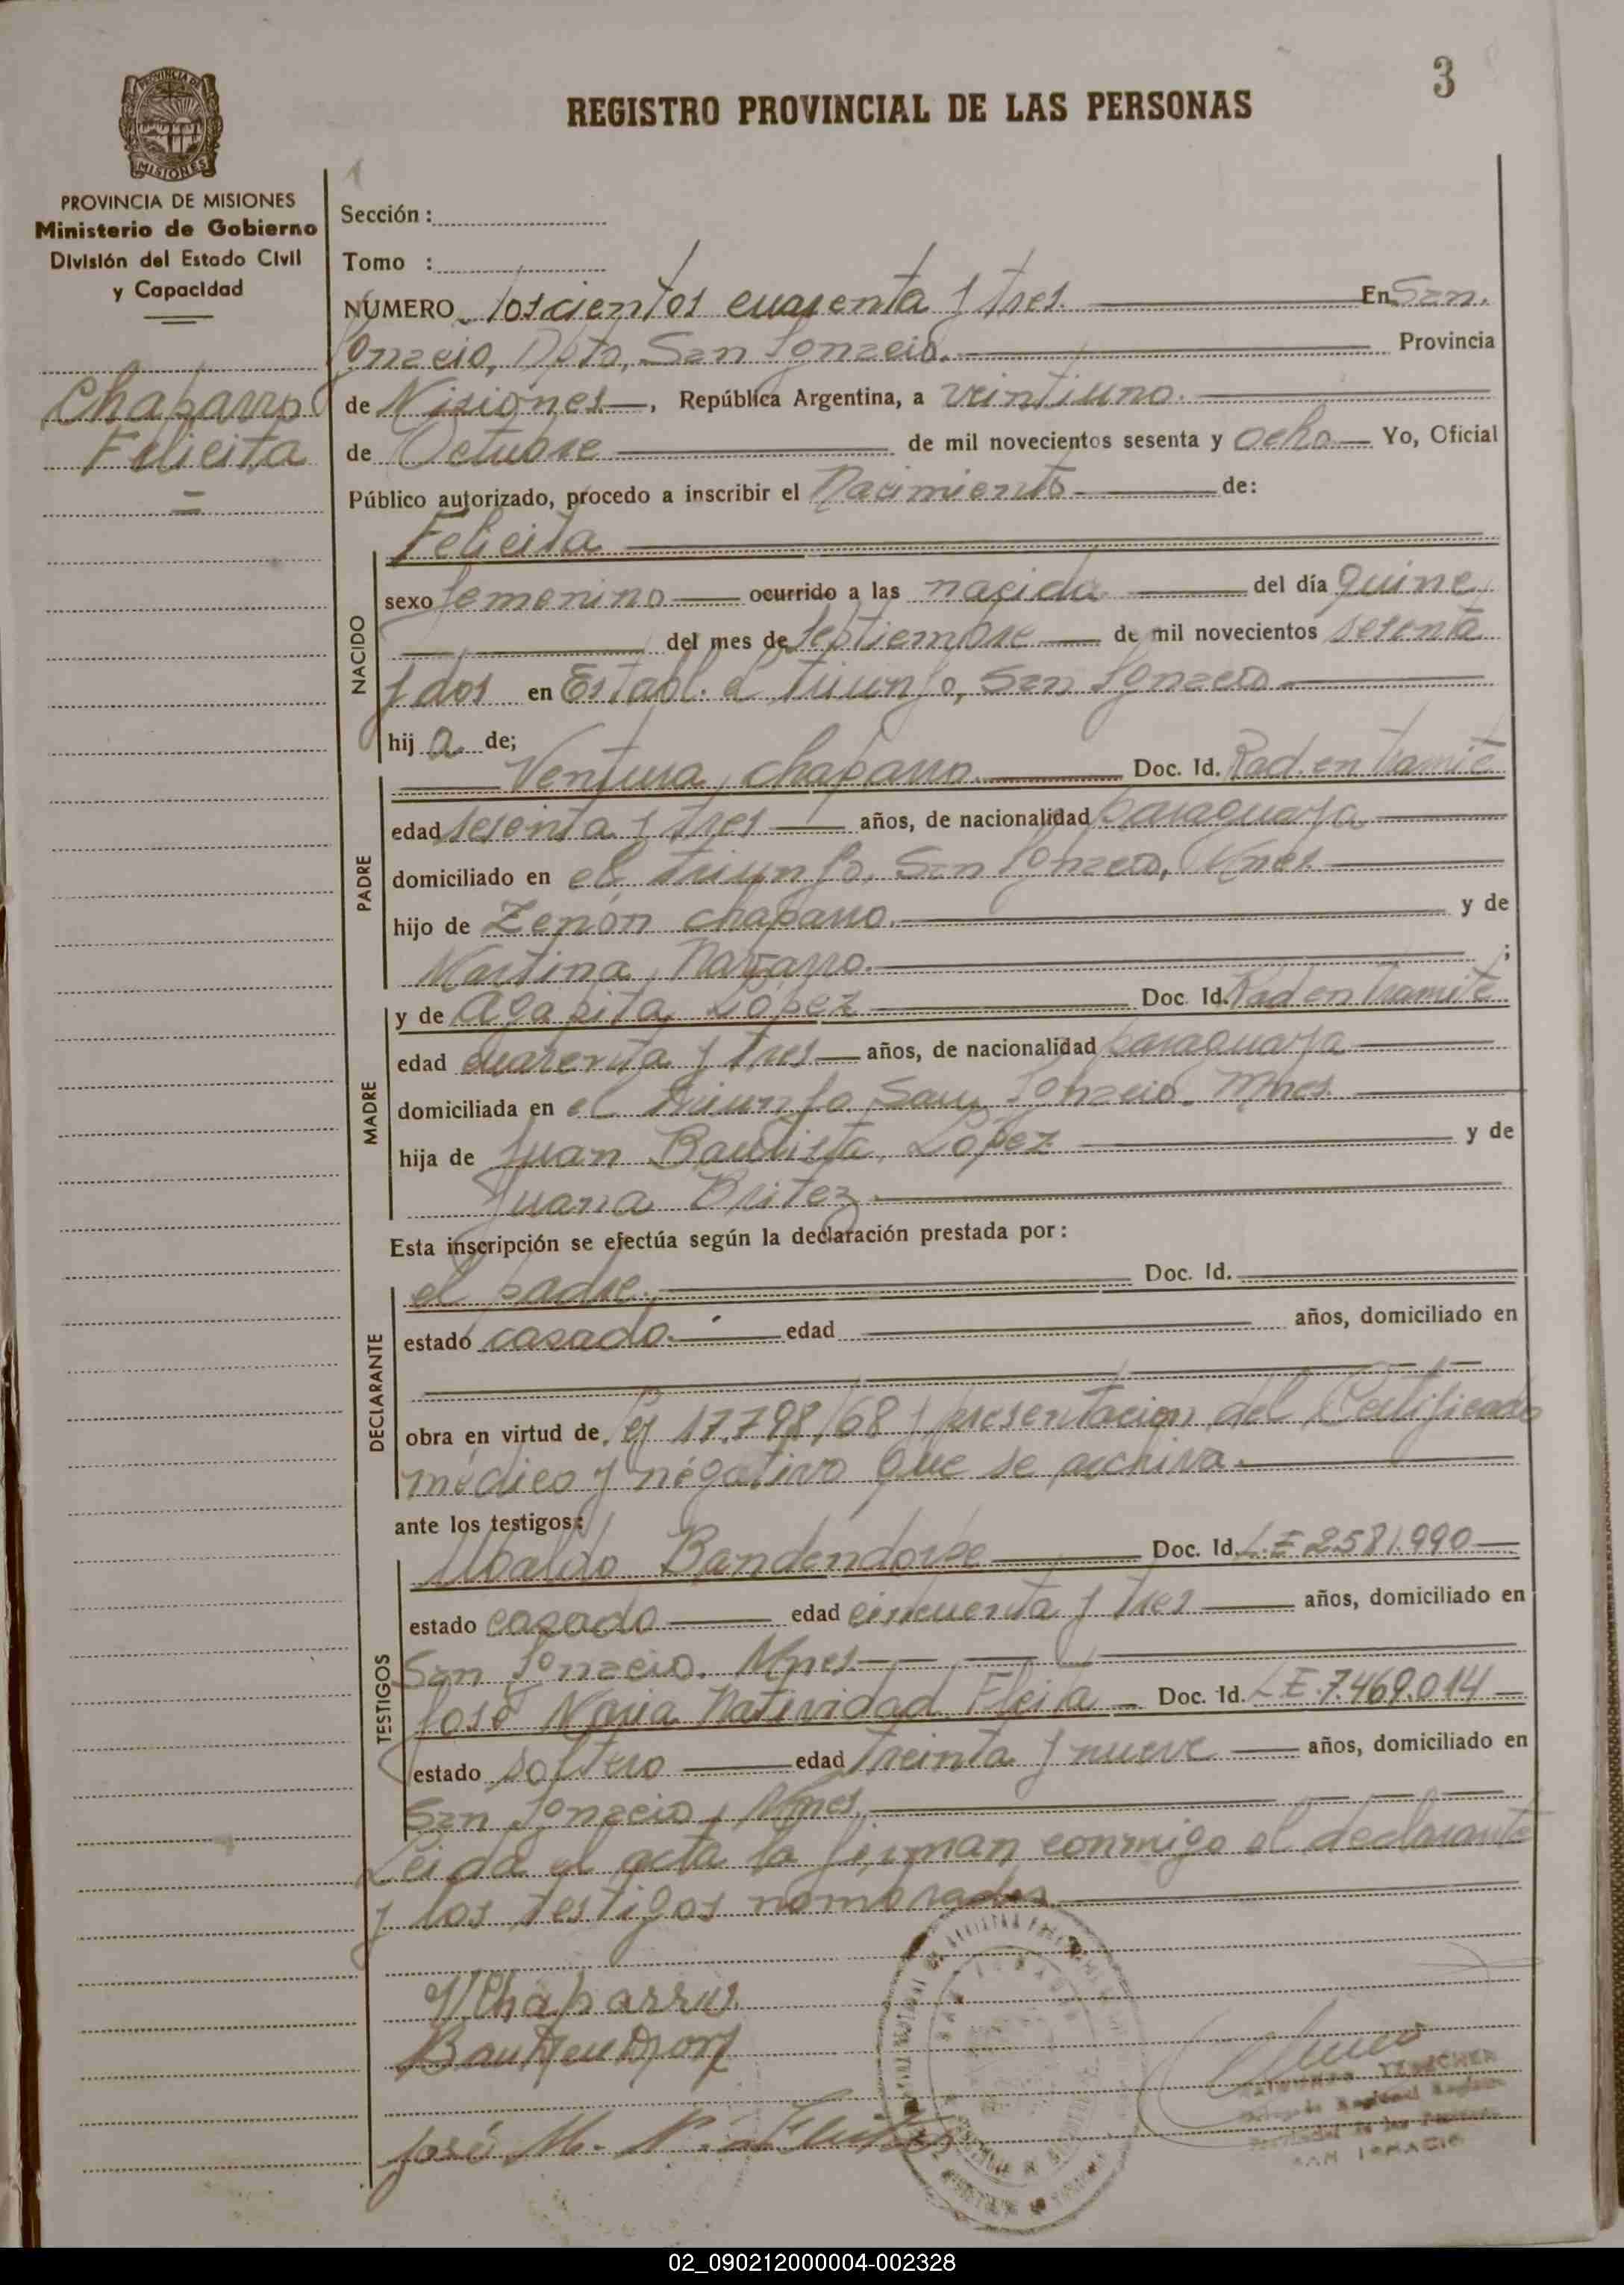 3
REGISTRO PROVINCIAL DE LAS PERSONAS
PROVINCIA DE MISIONES
Ministerio de Gobierno
División del Estado Civil
y Capacidad
Chaparro
Felicita
Sección :
Tomo :
NÚMERO Doscientos cuarenta y tres. En San
Ignacio, Dpto, San Ignacio. Provincia
de Misiones, República Argentina, a veintiuno.
de Octubre de mil novecientos sesenta y ocho Yo, Oficial
Público autorizado, procedo a inscribir el Nacimiento de:
Felicita
NACIDO
sexo femenino ocurrido a las nacida del día quince
del mes de Septiembre de mil novecientos sesenta
y dos en Establ. el triunfo, San Ignacio
hij a de;
PADRE
Ventura, chaparro. Doc. Id. Rad. en tramite
edad sesenta y tres años, de nacionalidad paraguaya
domiciliado en el triunfo, San Ignacio, Mnes.
hijo de Zenón chaparro. y de
Martina, Navarro. ;
MADRE
y de Agapita, López Doc. Id. Rad en tramite
edad cuarenta y tres años, de nacionalidad paraguaya
domiciliada en el triunfo San Ignacio. Mnes.
hija de Juan Bautista, López y de
Juana Britez
Esta inscripción se efectúa según la declaración prestada por :
DECLARANTE
el padre. Doc. Id.
estado casado. edad años, domiciliado en
obra en virtud de Ley 17.798/68 y presentacion del Certificado
médico y negativo que se archiva.
ante los testigos:
TESTIGOS
Ubaldo Bandendorpe Doc. Id. L.E 2.581.990
estado casado edad cincuenta y tres años, domiciliado en
San Ignacio. Mnes.
José Maria Natividad Fleita Doc. Id. L.E. 7.469.014
estado soltero edad treinta y nueve años, domiciliado en
San Ignacio, Mnes.
Leida el acta la firman conmigo el declarante
y los testigos nombrados
VChaparro
José M. N. Fleita
SAN IGNACIO
02_090212000004-002328